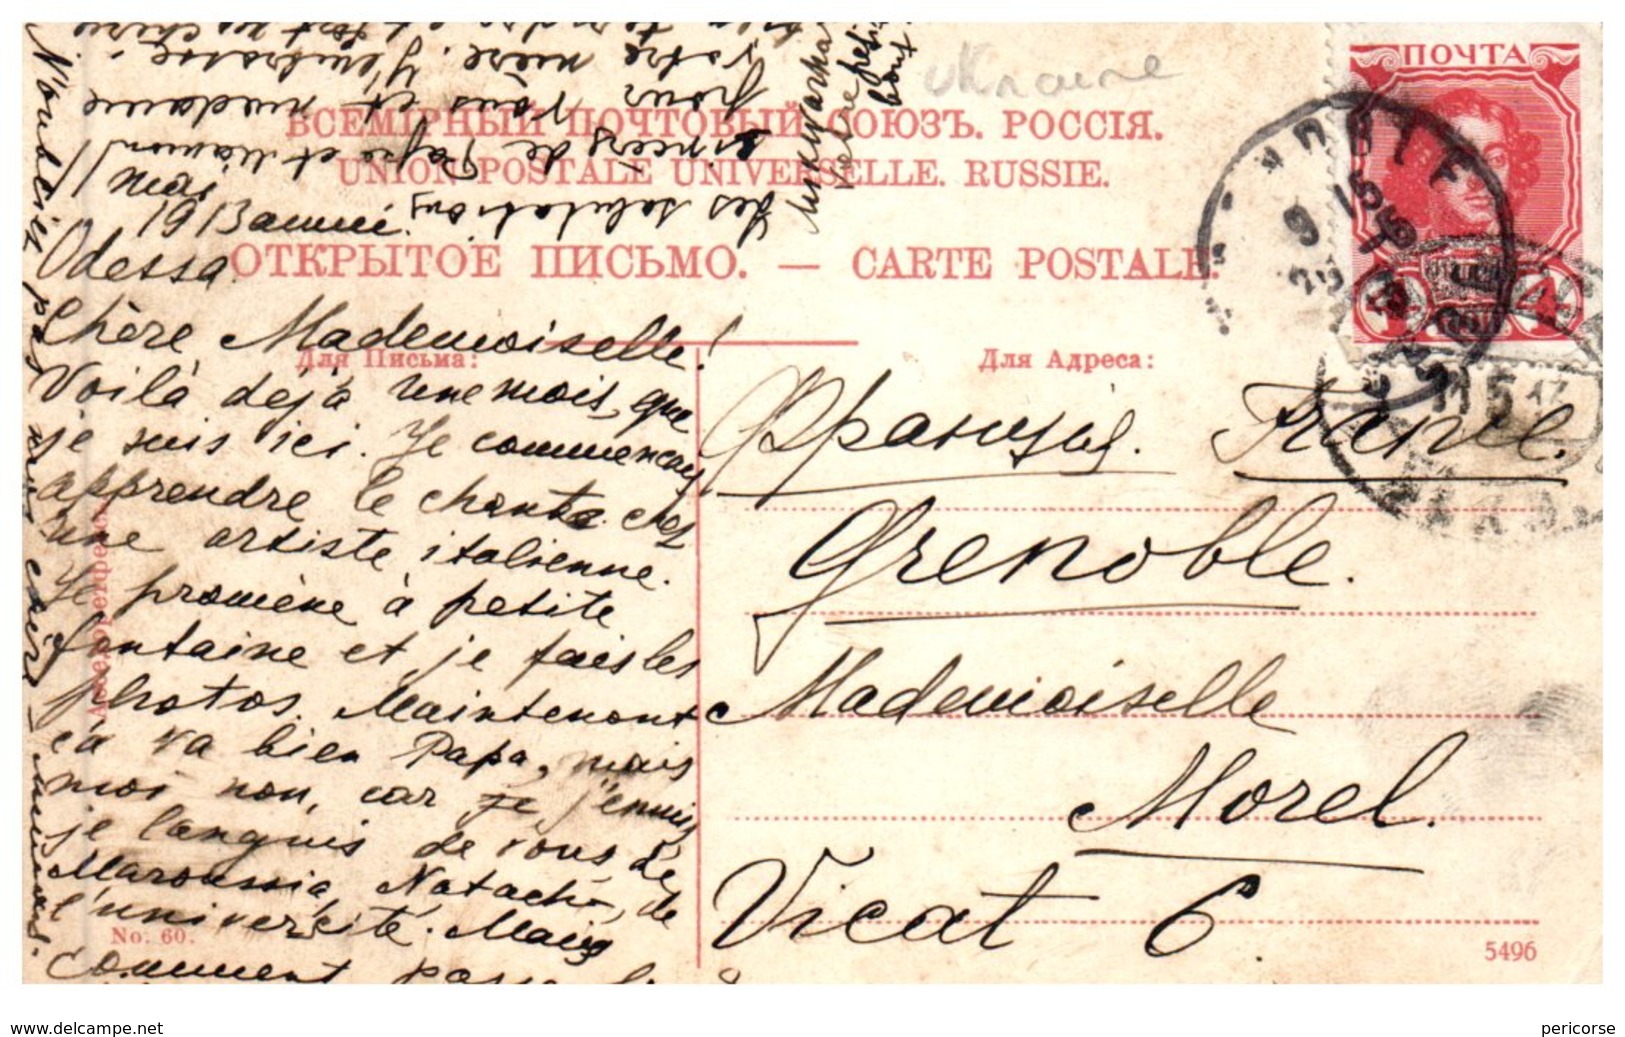 ukraine
ПОЧТА
ВСЕМІРНЫЙ ПОЧТОВЫЙ СОЮЗЪ. РОССІЯ.
UNION POSTALE UNIVERSELLE. RUSSIE.
ОТКРЫТОЕ ПИСЬМО. — CARTE POSTALE.
Для Письма:
Для Адреса:
1 mai
1913 année.
Odessa.
Chère Mademoiselle!
Voilà déjà une mois, que
je suis ici. Je commençais
apprendre le chante chez
une artiste italienne.
Je promène à petite
fontaine et je fais les
photos. Maintenant
ça va bien Papa, mais
moi non, car je j'ennuis,
je languis de vous de
Maroussia, Natache, de
l'université. Mais
comment
N'oubliez pas
les salutations
sincère de Papa et Maman
pour vous et madame
votre mère. J'embrasse
Франція. France.
Grenoble.
Mademoiselle
Morel.
Vicat 6.
11 5 13
4 4
No. 60.
5496
www.delcampe.net
pericorse